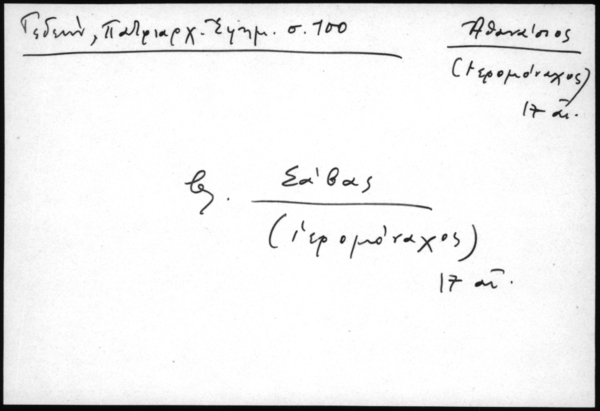 Γεδεών, Πατριαρχ. Ἐφημ. σ. 100
Ἀθανάσιος
(ἱερομόναχος)
17 αἰ.
βλ. Σάβας
(ἱερομόναχος)
17 αἰ.